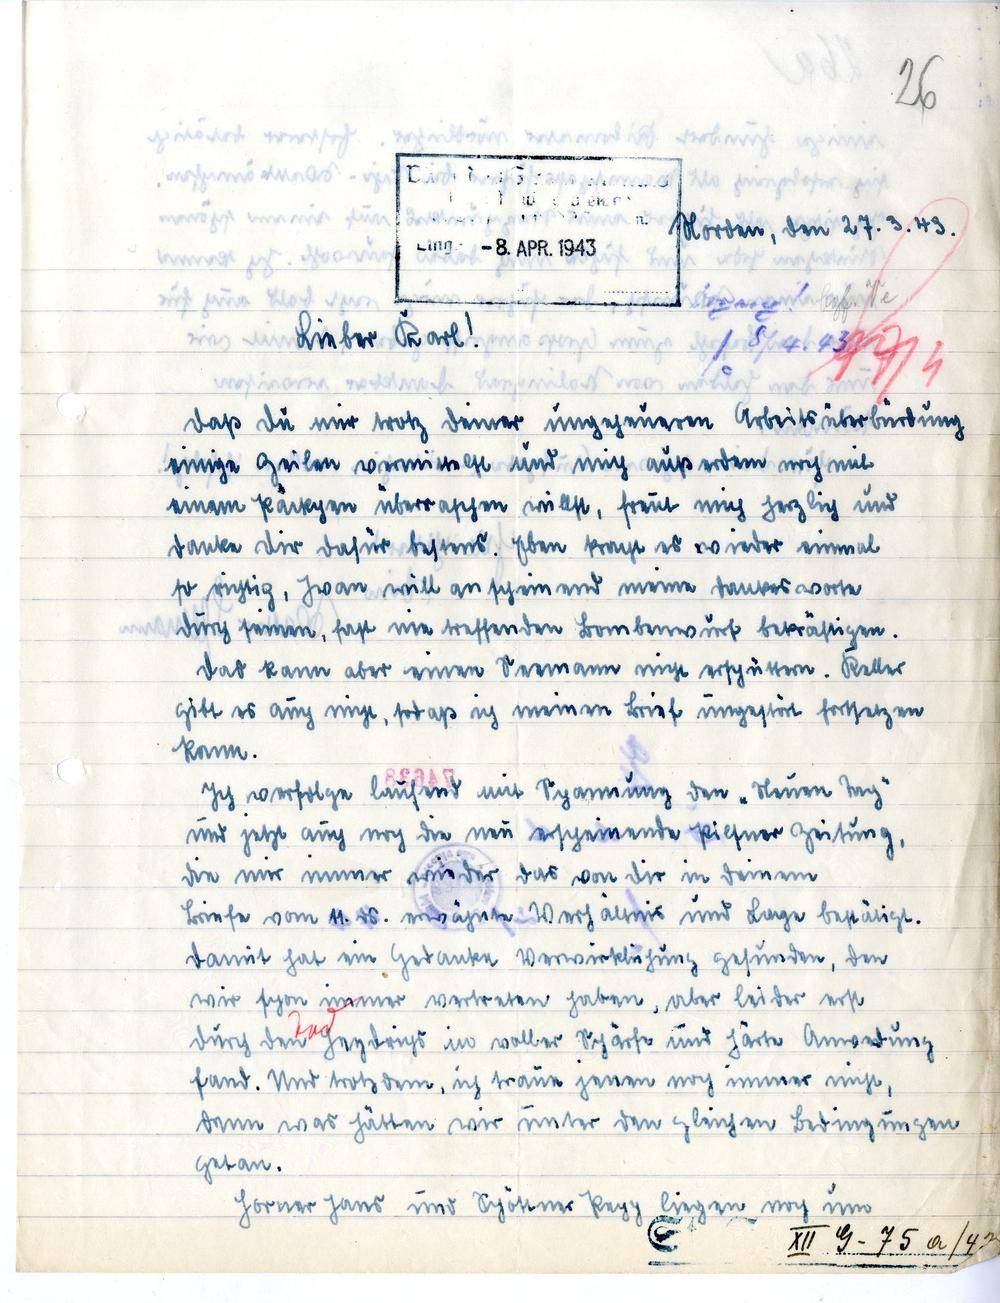 26
Eing. -8. APR. 1943
Norden, den 27.3.43.
8/4.43
Lieber Karl!
daß du mir trotz deiner ungeheueren Arbeitsüberbürdung
einige Zeilen vermittelst und mich außerdem noch mit
einem Päckchen überraschen willst, freut mich herzlich und
danke dir dafür bestens. Eben kracht es wieder einmal
so richtig, Iwan will anscheinend meine Dankesworte
durch seinen, fast nie treffenden Bombenwurf bekräftigen.
Das kann aber einen Seemann nicht erschüttern. Keller
gibt es auch nicht, sodaß ich meinen Brief ungestört fortsetzen
kann.
74638
Ich verfolge laufend mit Spannung den „Neuen Tag"
und jetzt auch noch die neu erscheinende Pilsner Zeitung,
die mir immer wieder das von dir in deinem
Briefe vom 11. ds. erwähnte Verhältnis und Lage bestätigt.
Damit hat ein Gedanke Verwirklichung gefunden, den
wir schon immer vertreten haben, aber leider erst
Tod
durch den Heydrichs in voller Schärfe und Härte Anwendung
fand. Und trotzdem, ich traue jenen noch immer nicht,
denn was hätten wir unter den gleichen Bedingungen
getan.
Horner Hans und Schöttner Sepp liegen noch um
XII G-75 a/43